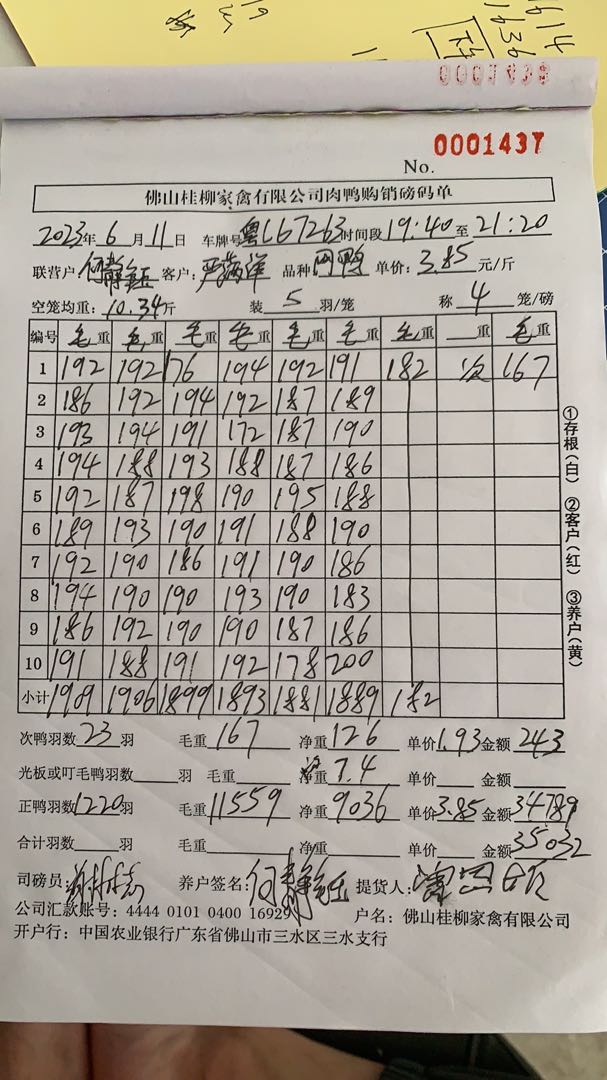 1614
1636
0001438
0001437
No.
佛山桂柳家禽有限公司肉鸭购销磅码单
2023年6月11日 车牌号粤L67263时间段19:40至21:20
联营户 何静钰 客户: 严满洋 品种 网鸭 单价: 3.85元/斤
空笼均重: 10.34斤 装 5 羽/笼 称 4 笼/磅
编号 毛重 毛重 毛重 毛重 毛重 毛重 毛重 重 毛重
1 192 192 176 194 192 191 182 次 167
2 186 192 194 192 187 189
3 193 194 191 172 187 190
4 194 188 193 188 187 186
5 192 187 198 190 195 188
6 189 193 190 191 188 190
7 192 190 186 191 190 186
8 194 190 190 193 190 183
9 186 192 190 190 187 186
10 191 188 191 192 178 200
小计 1909 1906 1899 1893 1881 1889 182
①存根(白) ②客户(红) ③养户(黄)
次鸭羽数 23 羽 毛重 167 净重 126 单价 1.93 金额 243
光板或叮毛鸭羽数 羽 毛重 净重 7.4 单价 金额
正鸭羽数 1220 羽 毛重 11559 净重 9036 单价 3.85 金额 34789
合计羽数 羽 毛重 净重 单价 金额 35032
司磅员: 养户签名: 何静钰 提货人:
公司汇款账号: 4444 0101 0400 16929 户名: 佛山桂柳家禽有限公司
开户行: 中国农业银行广东省佛山市三水区三水支行